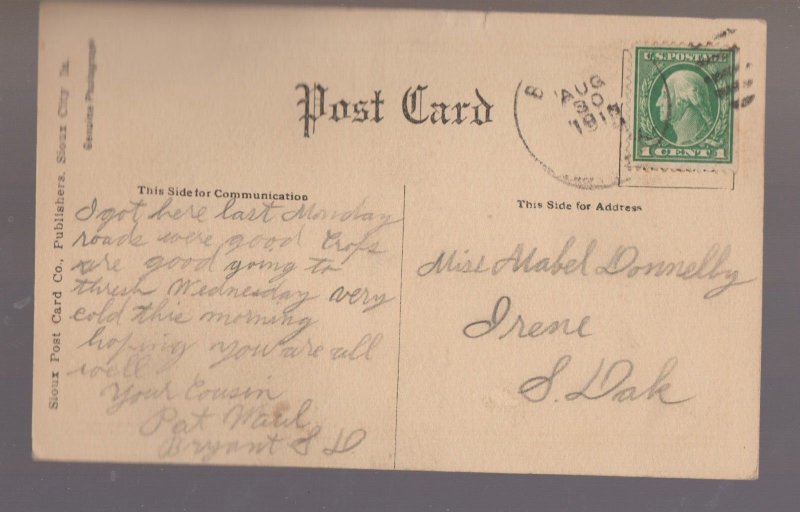 Post Card
Sioux Post Card Co., Publishers. Sioux City Ia.
Genuine Photograph
AUG
30
U.S. POSTAGE
1 CENT 1
This Side for Communication
I got here last Monday
roads were good Crops
are good going to
thresh Wednesday very
cold this morning
hoping you are all
well
Your Cousin
Pat Ward
Bryant S D
This Side for Address
Miss Mabel Donnelby
Irene
S. Dak